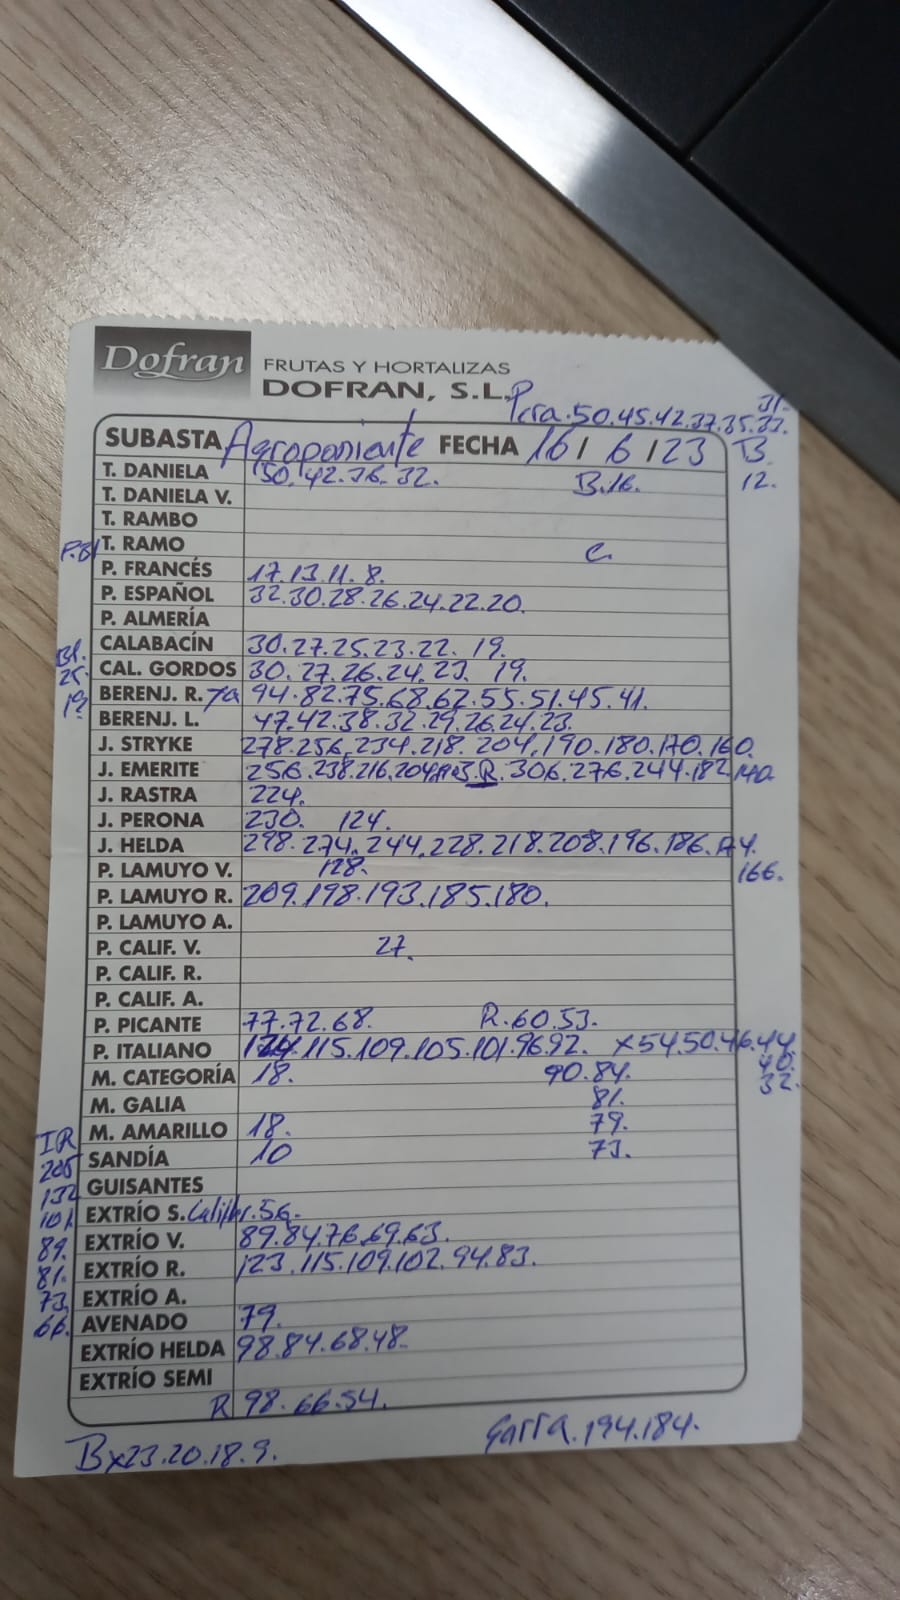 Dofran FRUTAS Y HORTALIZAS
DOFRAN, S.L.
31.
Pcra.50.45.42.37.35.33.
SUBASTA Agroponiente FECHA 16/6/23 B.
T. DANIELA 50.42.36.32. B.16. 12.
T. DANIELA V.
T. RAMBO
T. RAMO C.
P. FRANCÉS 17.13.11.8.
P. ESPAÑOL 32.30.28.26.24.22.20.
P. ALMERÍA
CALABACÍN 30.27.25.23.22. 19.
Bl. CAL. GORDOS 30.27.26.24.23. 19.
25. BERENJ. R. 94.82.75.68.62.55.51.45.41.
19. BERENJ. L. 47.42.38.32.29.26.24.23.
J. STRYKE 278.256.234.218.204.190.180.170.160.
J. EMERITE 256.238.216.204. R.306.276.244.182.140.
J. RASTRA 224.
J. PERONA 230. 124.
J. HELDA 298.274.244.228.218.208.196.186.174.
P. LAMUYO V. 128. 166.
P. LAMUYO R. 209.198.193.185.180.
P. LAMUYO A.
P. CALIF. V. 27.
P. CALIF. R.
P. CALIF. A.
P. PICANTE 77.72.68. R.60.53.
P. ITALIANO 115.109.105.101.96.92. x54.50.46.44.
40.
M. CATEGORÍA 18. 90.84. 32.
M. GALIA 81.
M. AMARILLO 18. 79.
IR
205 SANDÍA 10 73.
132 GUISANTES
101. EXTRÍO S. 56.
89. EXTRÍO V. 89.84.76.69.63.
81. EXTRÍO R. 123.115.109.102.94.83.
73. EXTRÍO A.
66. AVENADO 79.
EXTRÍO HELDA 98.84.68.48.
EXTRÍO SEMI
R 98.66.54.
Bx23.20.18.9. Garra.194.184.